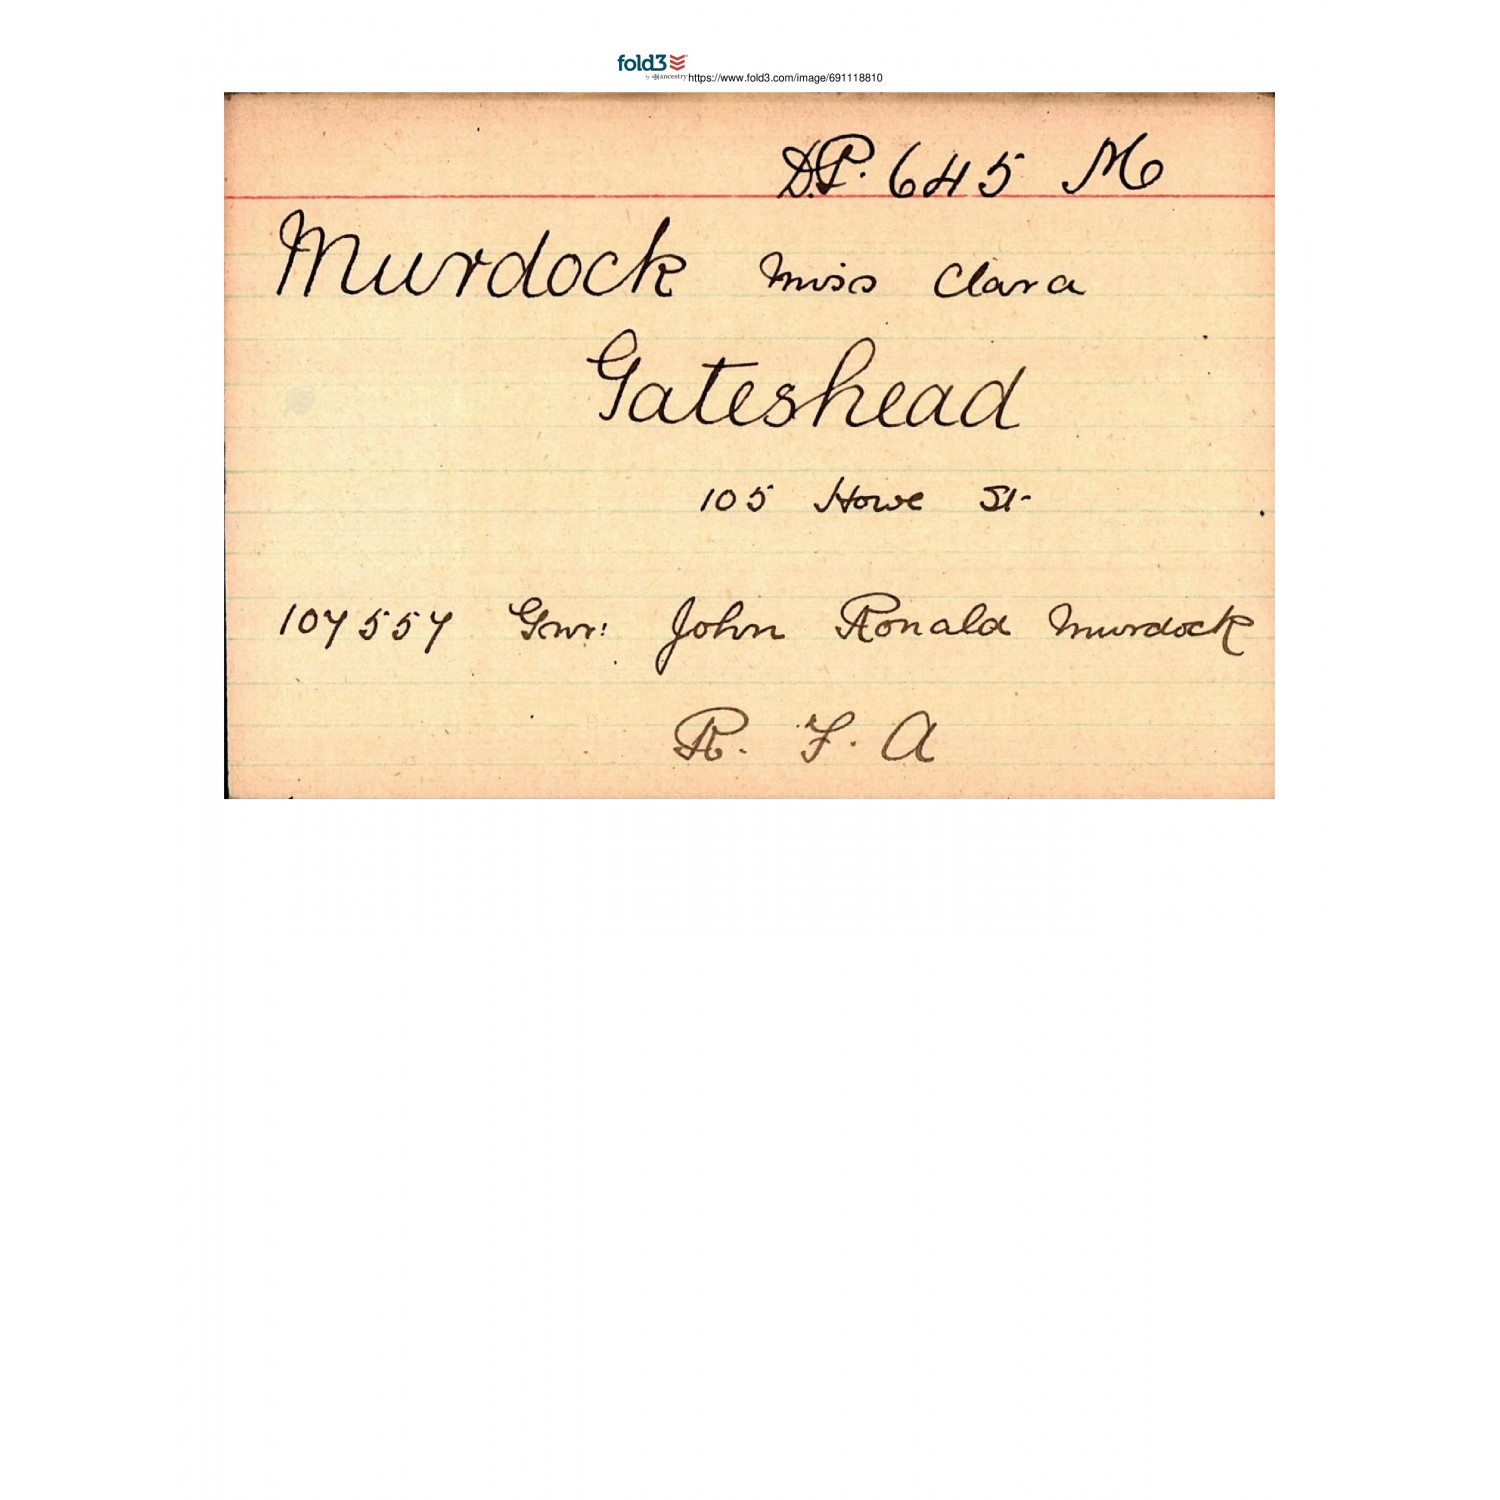 fold3
by ancestry https://www.fold3.com/image/691118810
D.P. 645 M
Murdock Miss Clara
Gateshead
105 Howe St.
107557 Gnr: John Ronald Murdock
R. F. A